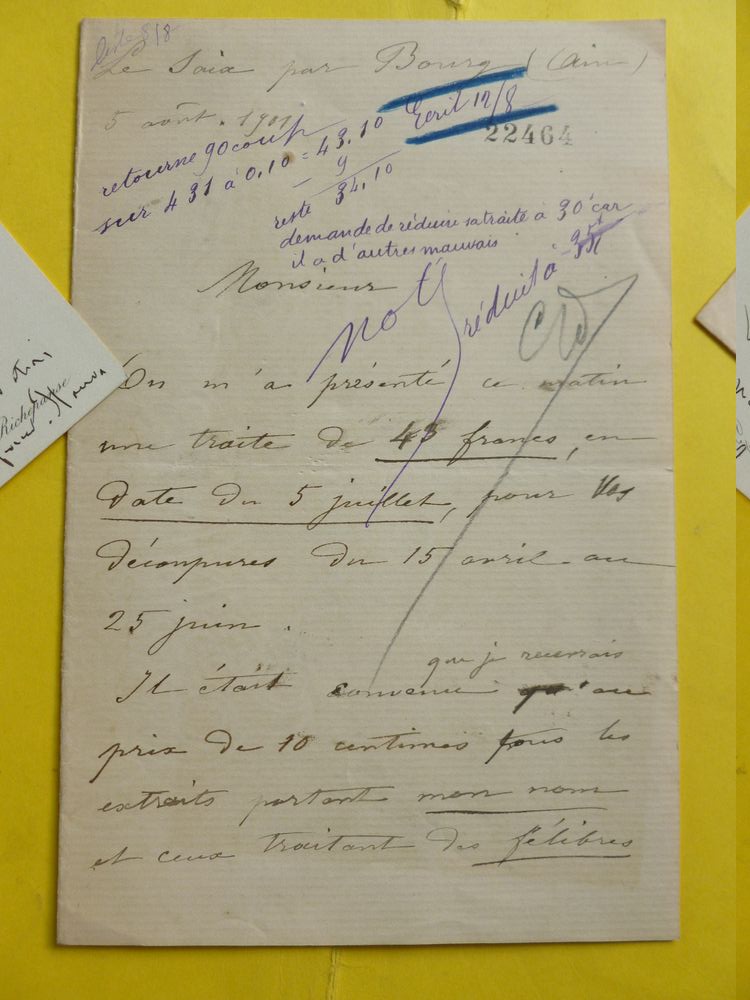 Le Saix par Bourg (Ain)
5 août. 1901
Ecrit 12/8
22464
retourne 90 coup
sur 431 à 0,10 = 43.10
— 9
reste 34.10
demande de réduire sa traite à 30f car
il a d'autres mauvais
réduit à
noté
Monsieur
On m'a présenté ce matin
une traite de 43 francs, en
date du 5 juillet, pour vos
découpures du 15 avril au
25 juin.
que je recevrais
Il était convenu qu'au
prix de 10 centimes tous les
extraits portant mon nom
et ceux traitant des félibres
Richepanse